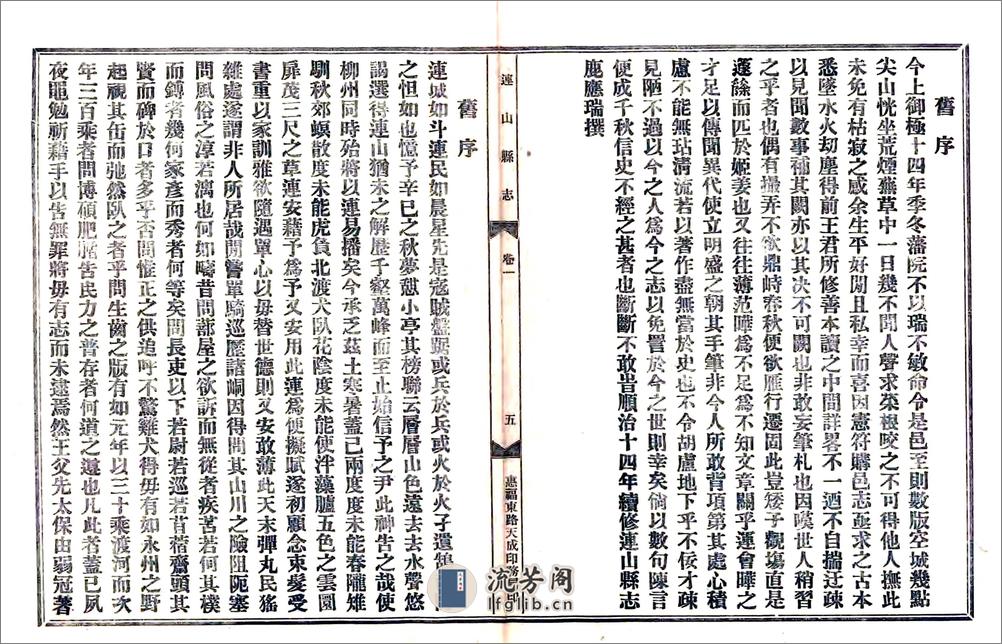 舊序
今上御極十四年季冬藩院不以瑞不敏命令是邑至則數版空城幾點
尖山恍坐荒煙蕪草中一日幾不聞人聲求菜根咬之不可得他人撫此
未免有枯寂之感余生平好閒且私幸而喜因憲符購邑志亟求之古本
悉墜水火劫塵得前王君所修善本讀之中間詳畧不一迺不自揣迂疎
以見聞數事補其闕亦以其决不可闕也非敢妄筆札也因嘆世人稍習
之乎者也偶有撮弄不欲鼎峙春秋便欲雁行遷固此豈矮子觀塲直是
蘧篨而匹於姬姜也又往往薄范曄爲不足爲不知文章關乎運會曄之
才足以傳聞異代使立明盛之朝其手筆非今人所敢背項第其處心積
慮不能無玷清流若以著作盡無當於史也不令胡盧地下乎不佞才疎
見陋不過以今之人爲今之志以免詈於今之世則幸矣倘以數句陳言
便成千秋信史不經之甚者也斷斷不敢旹順治十四年續修連山縣志
鹿應瑞撰
連山縣志 卷一 五 惠福東路天成印務局
舊序
連城如斗連民如晨星先是寇賊盤踞或兵於兵或火於火孑遺
之怛如也憶予辛巳之秋夢憇小亭其榜聯云層層山色遠去去水聲悠
謁選得連山猶未之解歷千壑萬峰而至止始信予之尹此神告之哉使
柳州同時殆將以連易播矣今承乏茲土寒暑蓋已兩度度未能春隴雉
馴秋郊螟散度未能虎負北渡犬臥花陰度未能使泮藻臚五色之雲圜
扉茂三尺之草連安藉予爲予又安用此連爲便擬賦遂初願念束髮受
書重以家訓雅欲隨遇單心以毋替世德則又安敢薄此天末彈丸民猺
雜處遂謂非人所居哉閒嘗單騎巡歷諸峒因得問其山川之險阻阨塞
問風俗之淳若漓也何如疇昔問蔀屋之欲訴而無從者疾苦若何其樸
而鏄者幾何家彥而秀者何等矣問長吏以下若尉若巡若苜蓿齋頭其
賢而碑於口者多乎否問惟正之供追呼不驚雞犬得毋有如永州之野
起視其缶而弛然臥之者乎問生齒之版有如元年以三十乘渡河而次
年三百乘者問博碩肥腯告民力之普存者何道之遵也凡此者蓋已夙
夜黽勉祈藉手以告無罪將毋有志而未逮焉然王父先太保由弱冠著